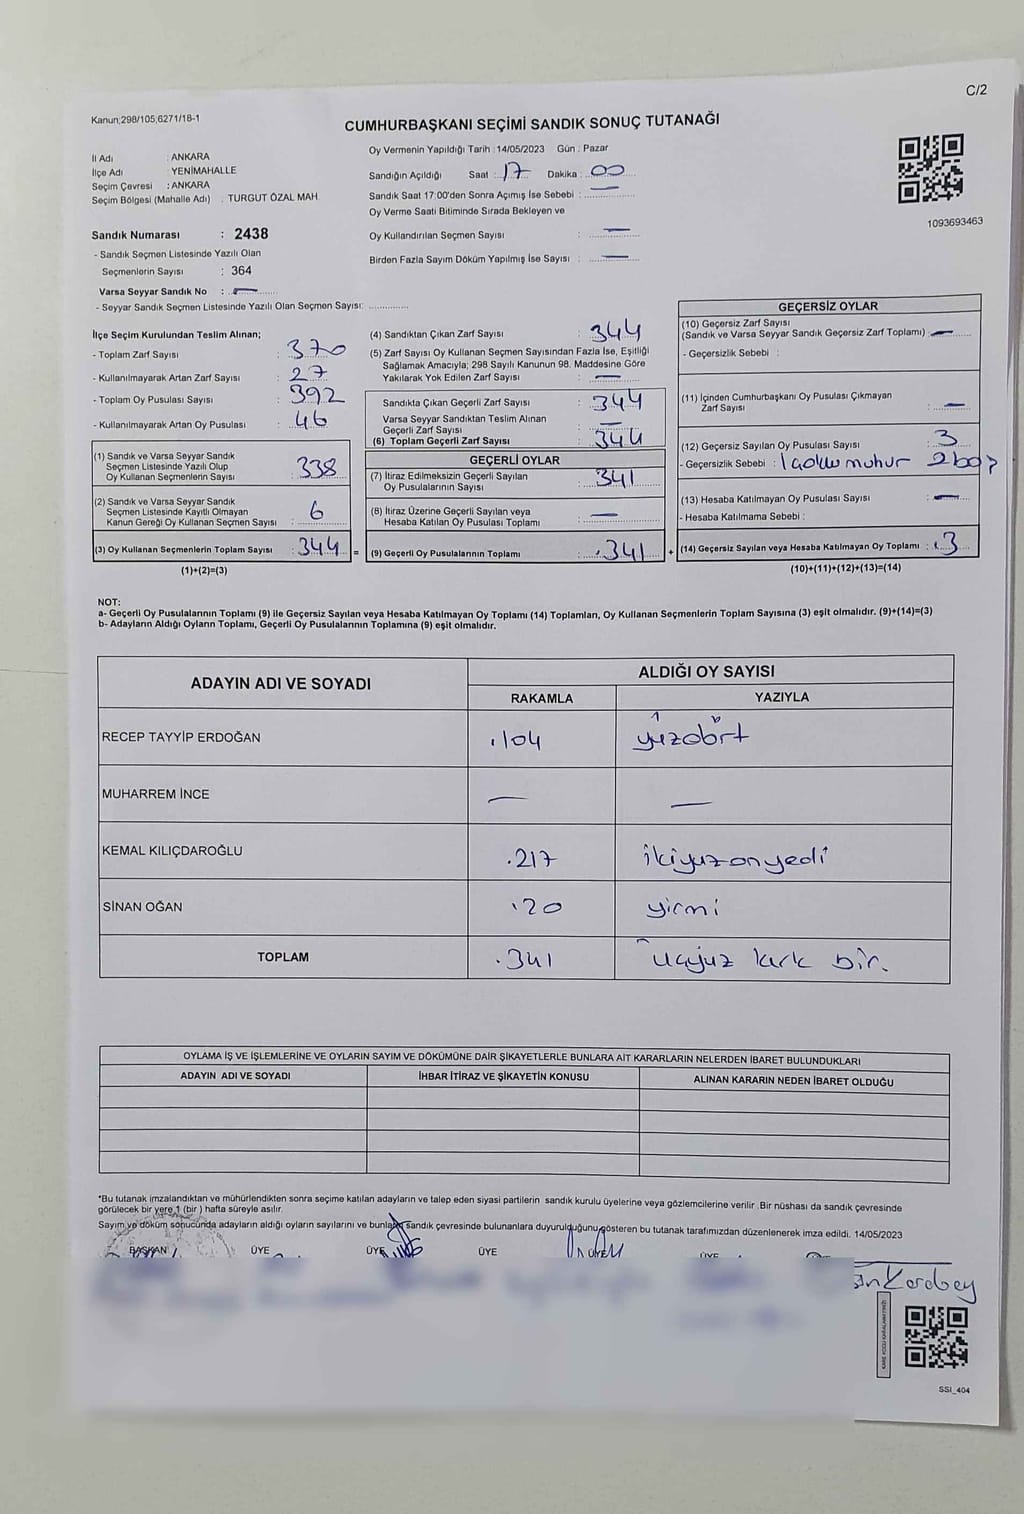 C/2
Kanun;298/105;6271/18-1
CUMHURBAŞKANI SEÇİMİ SANDIK SONUÇ TUTANAĞI
İl Adı : ANKARA
İlçe Adı : YENİMAHALLE
Seçim Çevresi : ANKARA
Seçim Bölgesi (Mahalle Adı) : TURGUT ÖZAL MAH.
Sandık Numarası : 2438
- Sandık Seçmen Listesinde Yazılı Olan
Seçmenlerin Sayısı : 364
Varsa Seyyar Sandık No : —
- Seyyar Sandık Seçmen Listesinde Yazılı Olan Seçmen Sayısı: ..............
Oy Vermenin Yapıldığı Tarih : 14/05/2023 Gün : Pazar
Sandığın Açıldığı Saat : 17 Dakika : 00
Sandık Saat 17:00'den Sonra Açımış İse Sebebi : —
Oy Verme Saati Bitiminde Sırada Bekleyen ve
Oy Kullandırılan Seçmen Sayısı : —
Birden Fazla Sayım Döküm Yapılmış İse Sayısı : —
1093693463
İlçe Seçim Kurulundan Teslim Alınan;
- Toplam Zarf Sayısı : 370
- Kullanılmayarak Artan Zarf Sayısı : 27
- Toplam Oy Pusulası Sayısı : 392
- Kullanılmayarak Artan Oy Pusulası : 46
(1) Sandık ve Varsa Seyyar Sandık
Seçmen Listesinde Yazılı Olup
Oy Kullanan Seçmenlerin Sayısı : 338
(2) Sandık ve Varsa Seyyar Sandık
Seçmen Listesinde Kayıtlı Olmayan
Kanun Gereği Oy Kullanan Seçmen Sayısı : 6
(3) Oy Kullanan Seçmenlerin Toplam Sayısı : 344 =
(1)+(2)=(3)
(4) Sandıktan Çıkan Zarf Sayısı : 344
(5) Zarf Sayısı Oy Kullanan Seçmen Sayısından Fazla İse, Eşitliği
Sağlamak Amacıyla; 298 Sayılı Kanunun 98. Maddesine Göre
Yakılarak Yok Edilen Zarf Sayısı : —
Sandıkta Çıkan Geçerli Zarf Sayısı : 344
Varsa Seyyar Sandıktan Teslim Alınan
Geçerli Zarf Sayısı : —
(6) Toplam Geçerli Zarf Sayısı : 344
GEÇERLİ OYLAR
(7) İtiraz Edilmeksizin Geçerli Sayılan
Oy Pusulalarının Sayısı : 341
(8) İtiraz Üzerine Geçerli Sayılan veya
Hesaba Katılan Oy Pusulası Toplamı : —
(9) Geçerli Oy Pusulalarının Toplamı : 341 +
GEÇERSİZ OYLAR
(10) Geçersiz Zarf Sayısı
(Sandık ve Varsa Seyyar Sandık Geçersiz Zarf Toplamı) : —
- Geçersizlik Sebebi :
(11) İçinden Cumhurbaşkanı Oy Pusulası Çıkmayan
Zarf Sayısı : —
(12) Geçersiz Sayılan Oy Pusulası Sayısı : 3
- Geçersizlik Sebebi : 1 muhur 2
(13) Hesaba Katılmayan Oy Pusulası Sayısı : —
- Hesaba Katılmama Sebebi :
(14) Geçersiz Sayılan veya Hesaba Katılmayan Oy Toplamı : 3
(10)+(11)+(12)+(13)=(14)
NOT:
a- Geçerli Oy Pusulalarının Toplamı (9) ile Geçersiz Sayılan veya Hesaba Katılmayan Oy Toplamı (14) Toplamları, Oy Kullanan Seçmenlerin Toplam Sayısına (3) eşit olmalıdır. (9)+(14)=(3)
b- Adayların Aldığı Oyların Toplamı, Geçerli Oy Pusulalarının Toplamına (9) eşit olmalıdır.
ADAYIN ADI VE SOYADI ALDIĞI OY SAYISI
RAKAMLA YAZIYLA
RECEP TAYYİP ERDOĞAN 104 yüzdört
MUHARREM İNCE — —
KEMAL KILIÇDAROĞLU 217 ikiyuzonyedi
SİNAN OĞAN 20 yirmi
TOPLAM 341 üçyuz kırk bir.
OYLAMA İŞ VE İŞLEMLERİNE VE OYLARIN SAYIM VE DÖKÜMÜNE DAİR ŞİKAYETLERLE BUNLARA AİT KARARLARIN NELERDEN İBARET BULUNDUKLARI
ADAYIN ADI VE SOYADI İHBAR İTİRAZ VE ŞİKAYETİN KONUSU ALINAN KARARIN NEDEN İBARET OLDUĞU
*Bu tutanak imzalandıktan ve mühürlendikten sonra seçime katılan adayların ve talep eden siyasi partilerin sandık kurulu üyelerine veya gözlemcilerine verilir. Bir nüshası da sandık çevresinde
görülecek bir yere 1 (bir ) hafta süreyle asılır.
Sayım ve döküm sonucunda adayların aldığı oyların sayılarını ve bunların sandık çevresinde bulunanlara duyurulduğunu gösteren bu tutanak tarafımızdan düzenlenerek imza edildi. 14/05/2023
BAŞKAN ÜYE ÜYE ÜYE ÜYE ÜYE
SSI_404